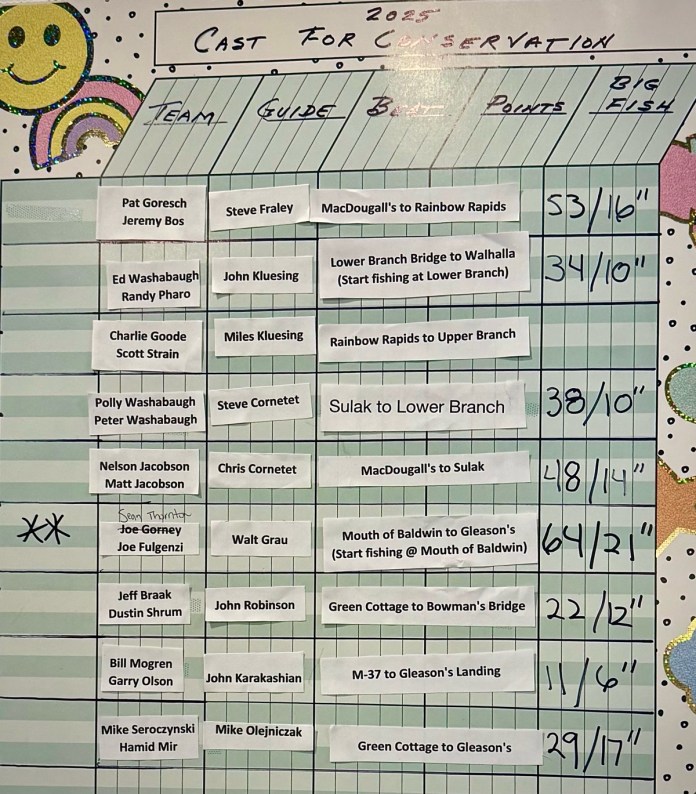 2025
CAST FOR CONSERVATION
TEAM GUIDE POINTS BIG FISH
Pat Goresch
Jeremy Bos
Steve Fraley
MacDougall's to Rainbow Rapids
53/16"
Ed Washabaugh
Randy Pharo
John Kluesing
Lower Branch Bridge to Walhalla
(Start fishing at Lower Branch)
34/10"
Charlie Goode
Scott Strain
Miles Kluesing
Rainbow Rapids to Upper Branch
Polly Washabaugh
Peter Washabaugh
Steve Cornetet
Sulak to Lower Branch
38/10"
Nelson Jacobson
Matt Jacobson
Chris Cornetet
MacDougall's to Sulak
48/14"
**
Sean Thornton
Joe Gorney
Joe Fulgenzi
Walt Grau
Mouth of Baldwin to Gleason's
(Start fishing @ Mouth of Baldwin)
64/21"
Jeff Braak
Dustin Shrum
John Robinson
Green Cottage to Bowman's Bridge
22/12"
Bill Mogren
Garry Olson
John Karakashian
M-37 to Gleason's Landing
11/6"
Mike Seroczynski
Hamid Mir
Mike Olejniczak
Green Cottage to Gleason's
29/17"